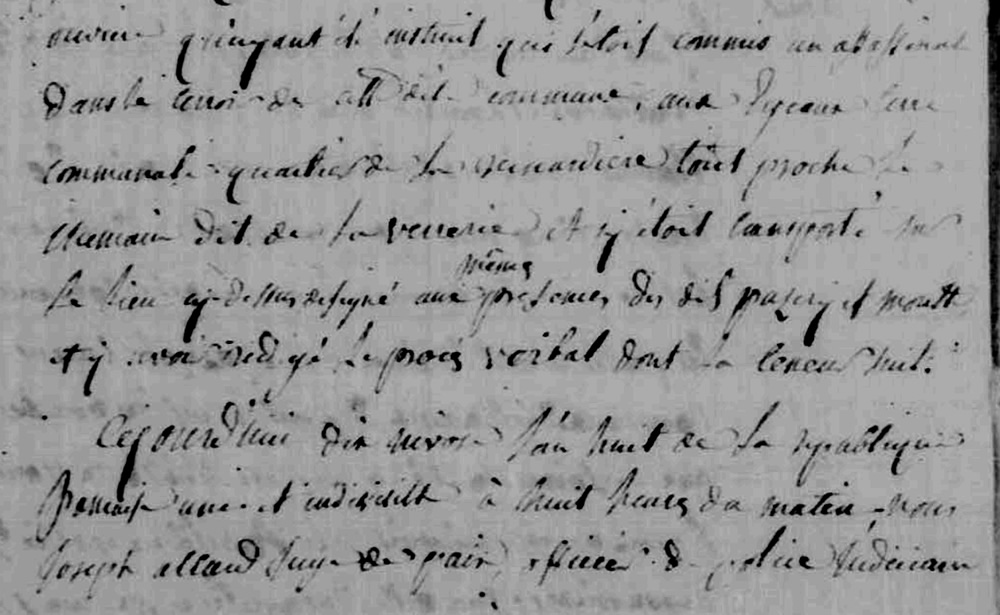 ouvrier qu'ayant été instruit qu'il s'étoit commis un assassinat
Dans le terroir de cette dite commune, aux terre
communale quartier de la renardiere tout proche le
chemin dit de la verrerie et s'y étoit transporté sur
le lieu cy-dessus designé aux mêmes presences des dits et
et y avoir redigé le procés verbal dont la teneur suit:
Cejourd'hui dix nivose l'an huit de la republique
francaise une et indivisible à huit heures du matin, nous
Joseph allard Juge de paix, officier de police Judiciaire